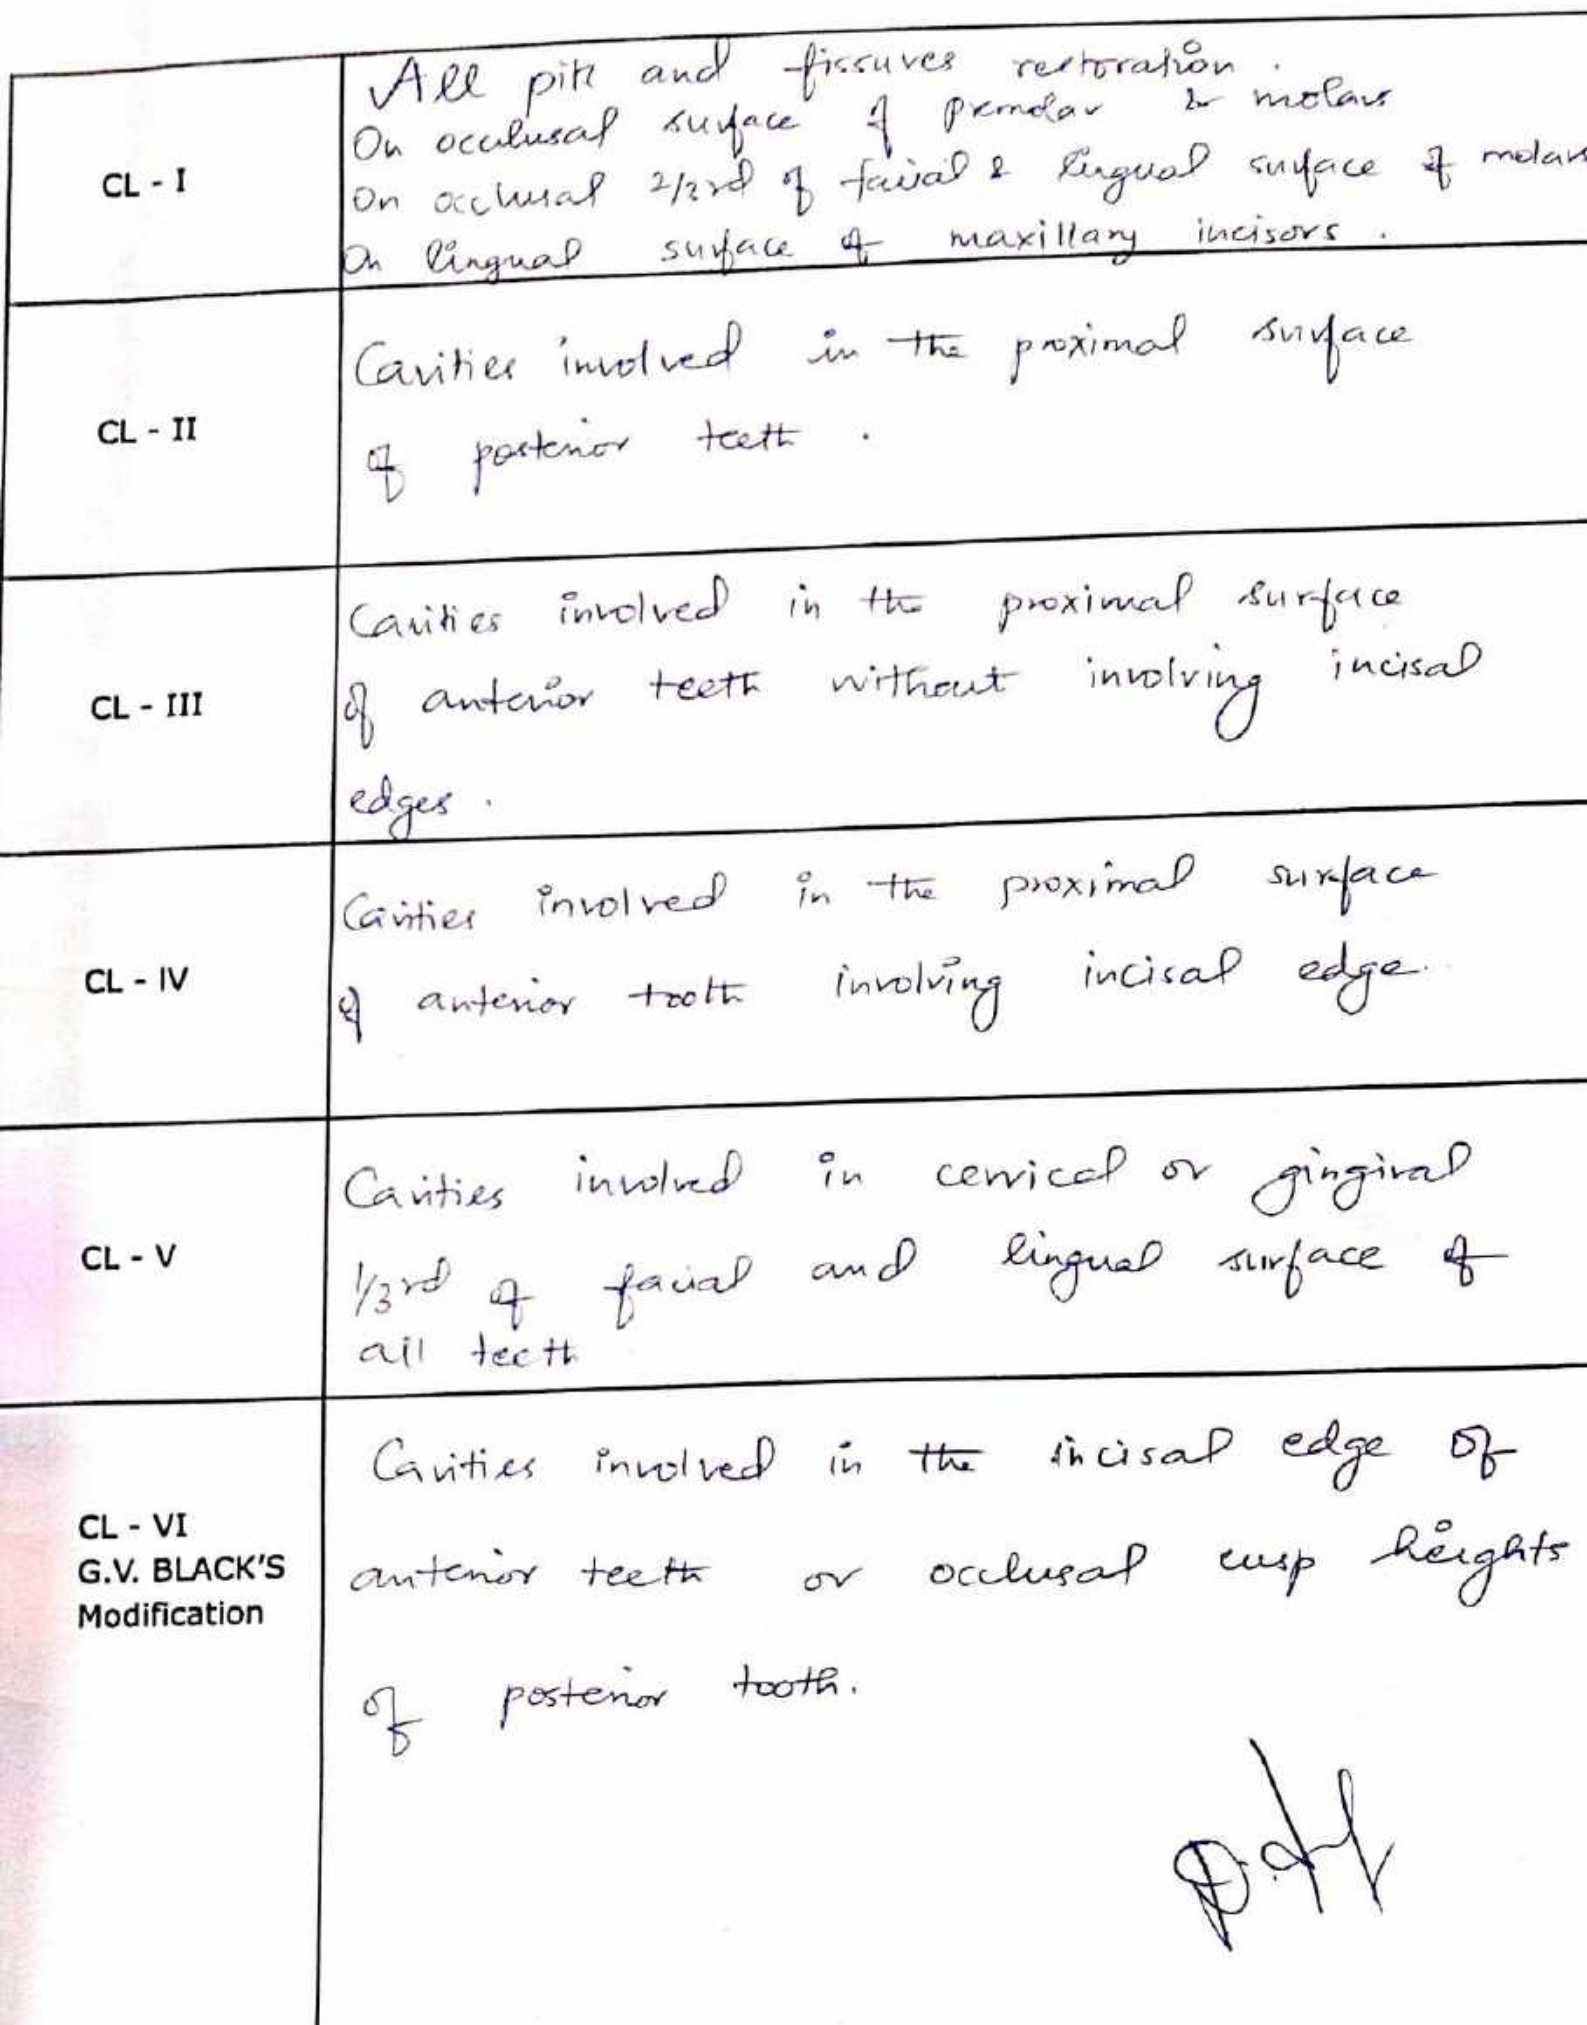 All pitt and fissures restoration.
On occulusal surface of premolar & molars
CL - I
On occlusal 2/3rd of facial & lingual surface of molars
On lingual surface of maxillary incisors.
Cavities involved in the proximal surface
CL - II
of posterior teeth.
Cavities involved in the proximal surface
CL - III
of anterior teeth without involving incisal
edges.
Cavities involved in the proximal surface
CL - IV
of anterior tooth involving incisal edge.
Cavities involved in cervical or gingival
CL - V
1/3rd of facial and lingual surface of
all teeth
Cavities involved in the incisal edge of
CL - VI
G.V. BLACK'S
Modification
anterior teeth or occlusal cusp heights
of posterior tooth.